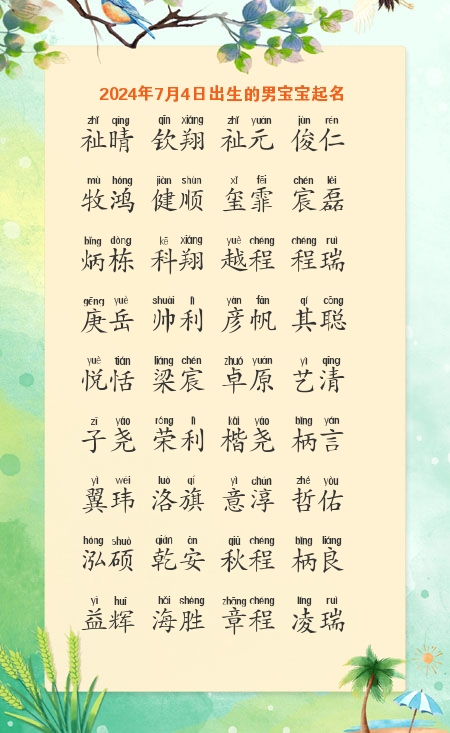 2024年7月4日出生的男宝宝起名
zhǐ qíng qīn xiáng zhǐ yuán jùn rén
祉晴 钦翔 祉元 俊仁
mù hóng jiàn shùn xǐ fēi chén lěi
牧鸿 健顺 玺霏 宸磊
bǐng dòng kē xiáng yuè chéng chéng ruì
炳栋 科翔 越程 程瑞
gēng yuè shuài lì yàn fān qí cōng
庚岳 帅利 彦帆 其聪
yuè tián liáng chén zhuó yuán yì qīng
悦恬 梁宸 卓原 艺清
zǐ yáo róng lì kǎi yáo bǐng yán
子尧 荣利 楷尧 柄言
yì wěi luò qí yì chún zhé yòu
翼玮 洛旗 意淳 哲佑
hóng shuò qián ān qiū chéng bǐng liáng
泓硕 乾安 秋程 柄良
yì huī hǎi shèng zhāng chéng líng ruì
益辉 海胜 章程 凌瑞